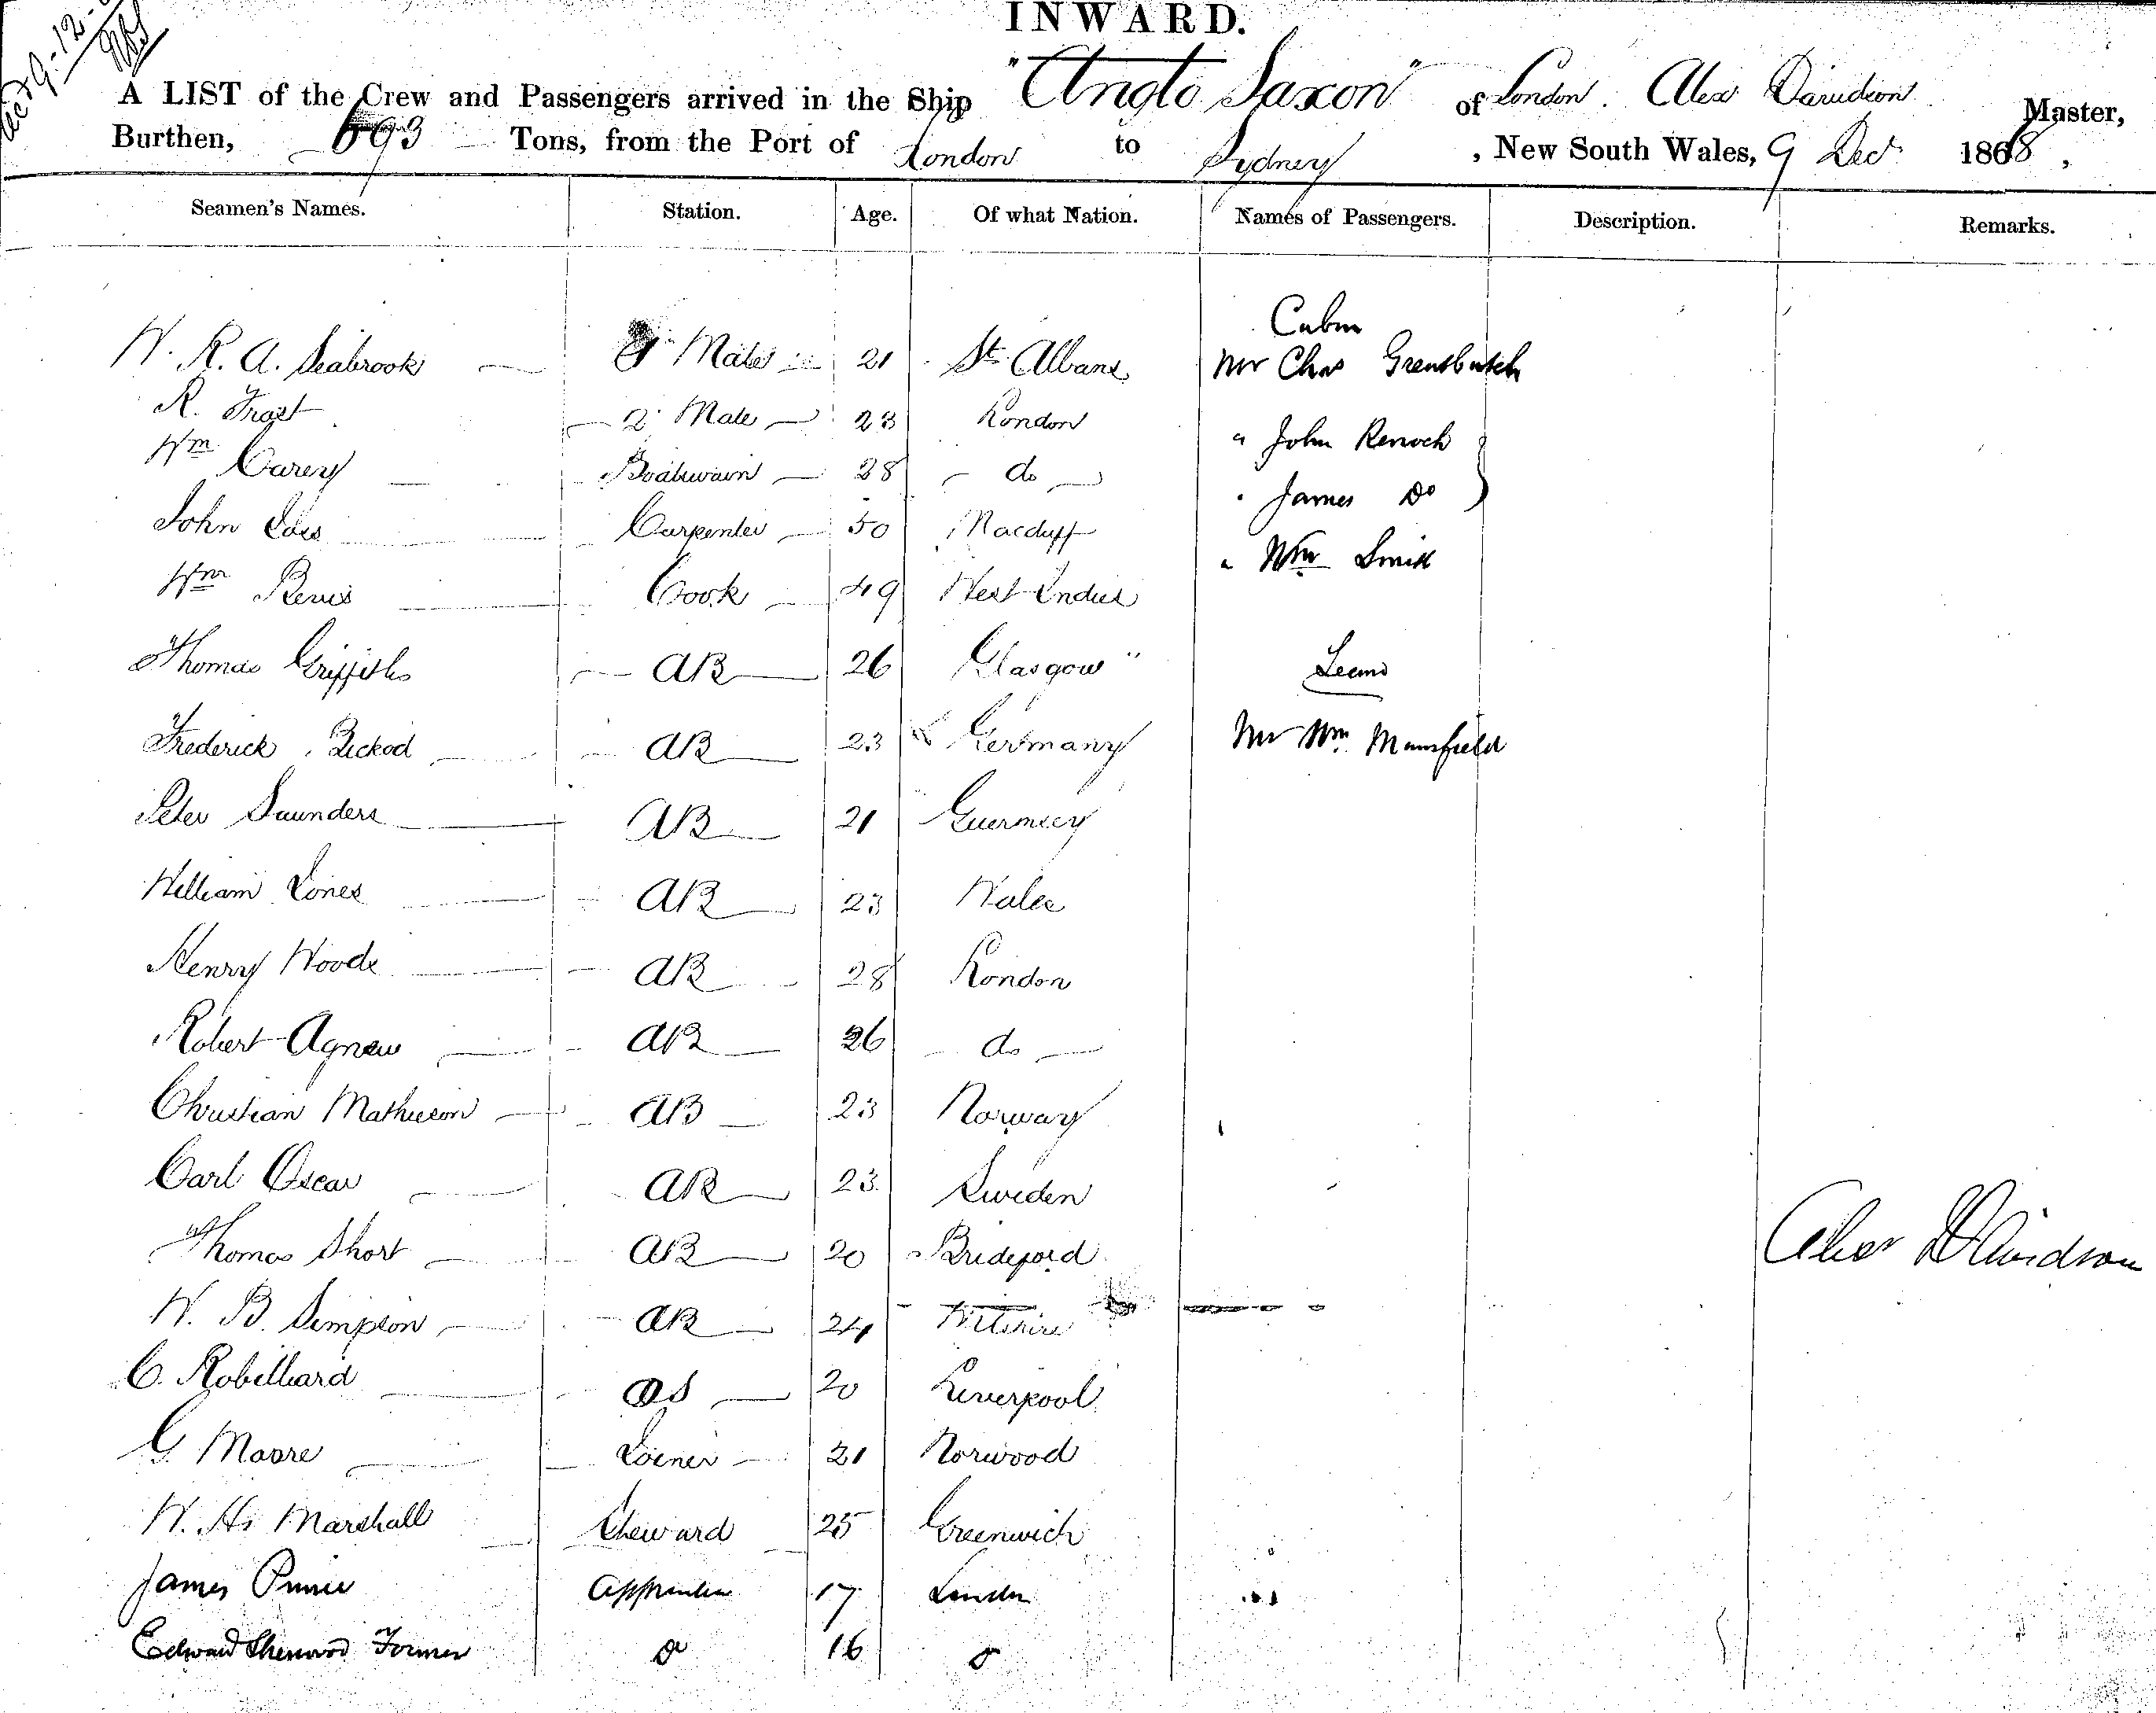 INWARD.
A LIST of the Crew and Passengers arrived in the Ship "Anglo Saxon" of London. Alex Davidson Master,
Burthen, 693 Tons, from the Port of London to Sydney, New South Wales, 9 Dec 1868,
Seamen's Names. Station. Age. Of what Nation. Names of Passengers. Description. Remarks.
Cabin
W. R. A. Seabrook Mate 21 St Albans Mr Chas
R. Frost 2 Mate 23 London
Wm Carey Boatswain 28 do " John Renoch
James Do
John Carpenter 50 Macduff
Wm Cook 49 West Indies " Wm Smith
Thomas Griffiths AB 26 Glasgow
Frederick AB 23 Germany Mr Wm Mansfield
Peter Saunders AB 21 Guernsey
William Jones AB 23 Wales
Henry Woods AB 28 London
Robert Agnew AB 26 do
Christian Mathieson AB 23 Norway
Carl Oscar AB 23 Sweden
Thomas Short AB 20 Brideford
Alex Davidson
W. B. Simpson AB 24
C. Robilliard OS 20 Liverpool
G. Moore Joiner 21 Norwood
W. H. Marshall Steward 25 Greenwich
James Apprentice 17 London
Edward Sherwood 16